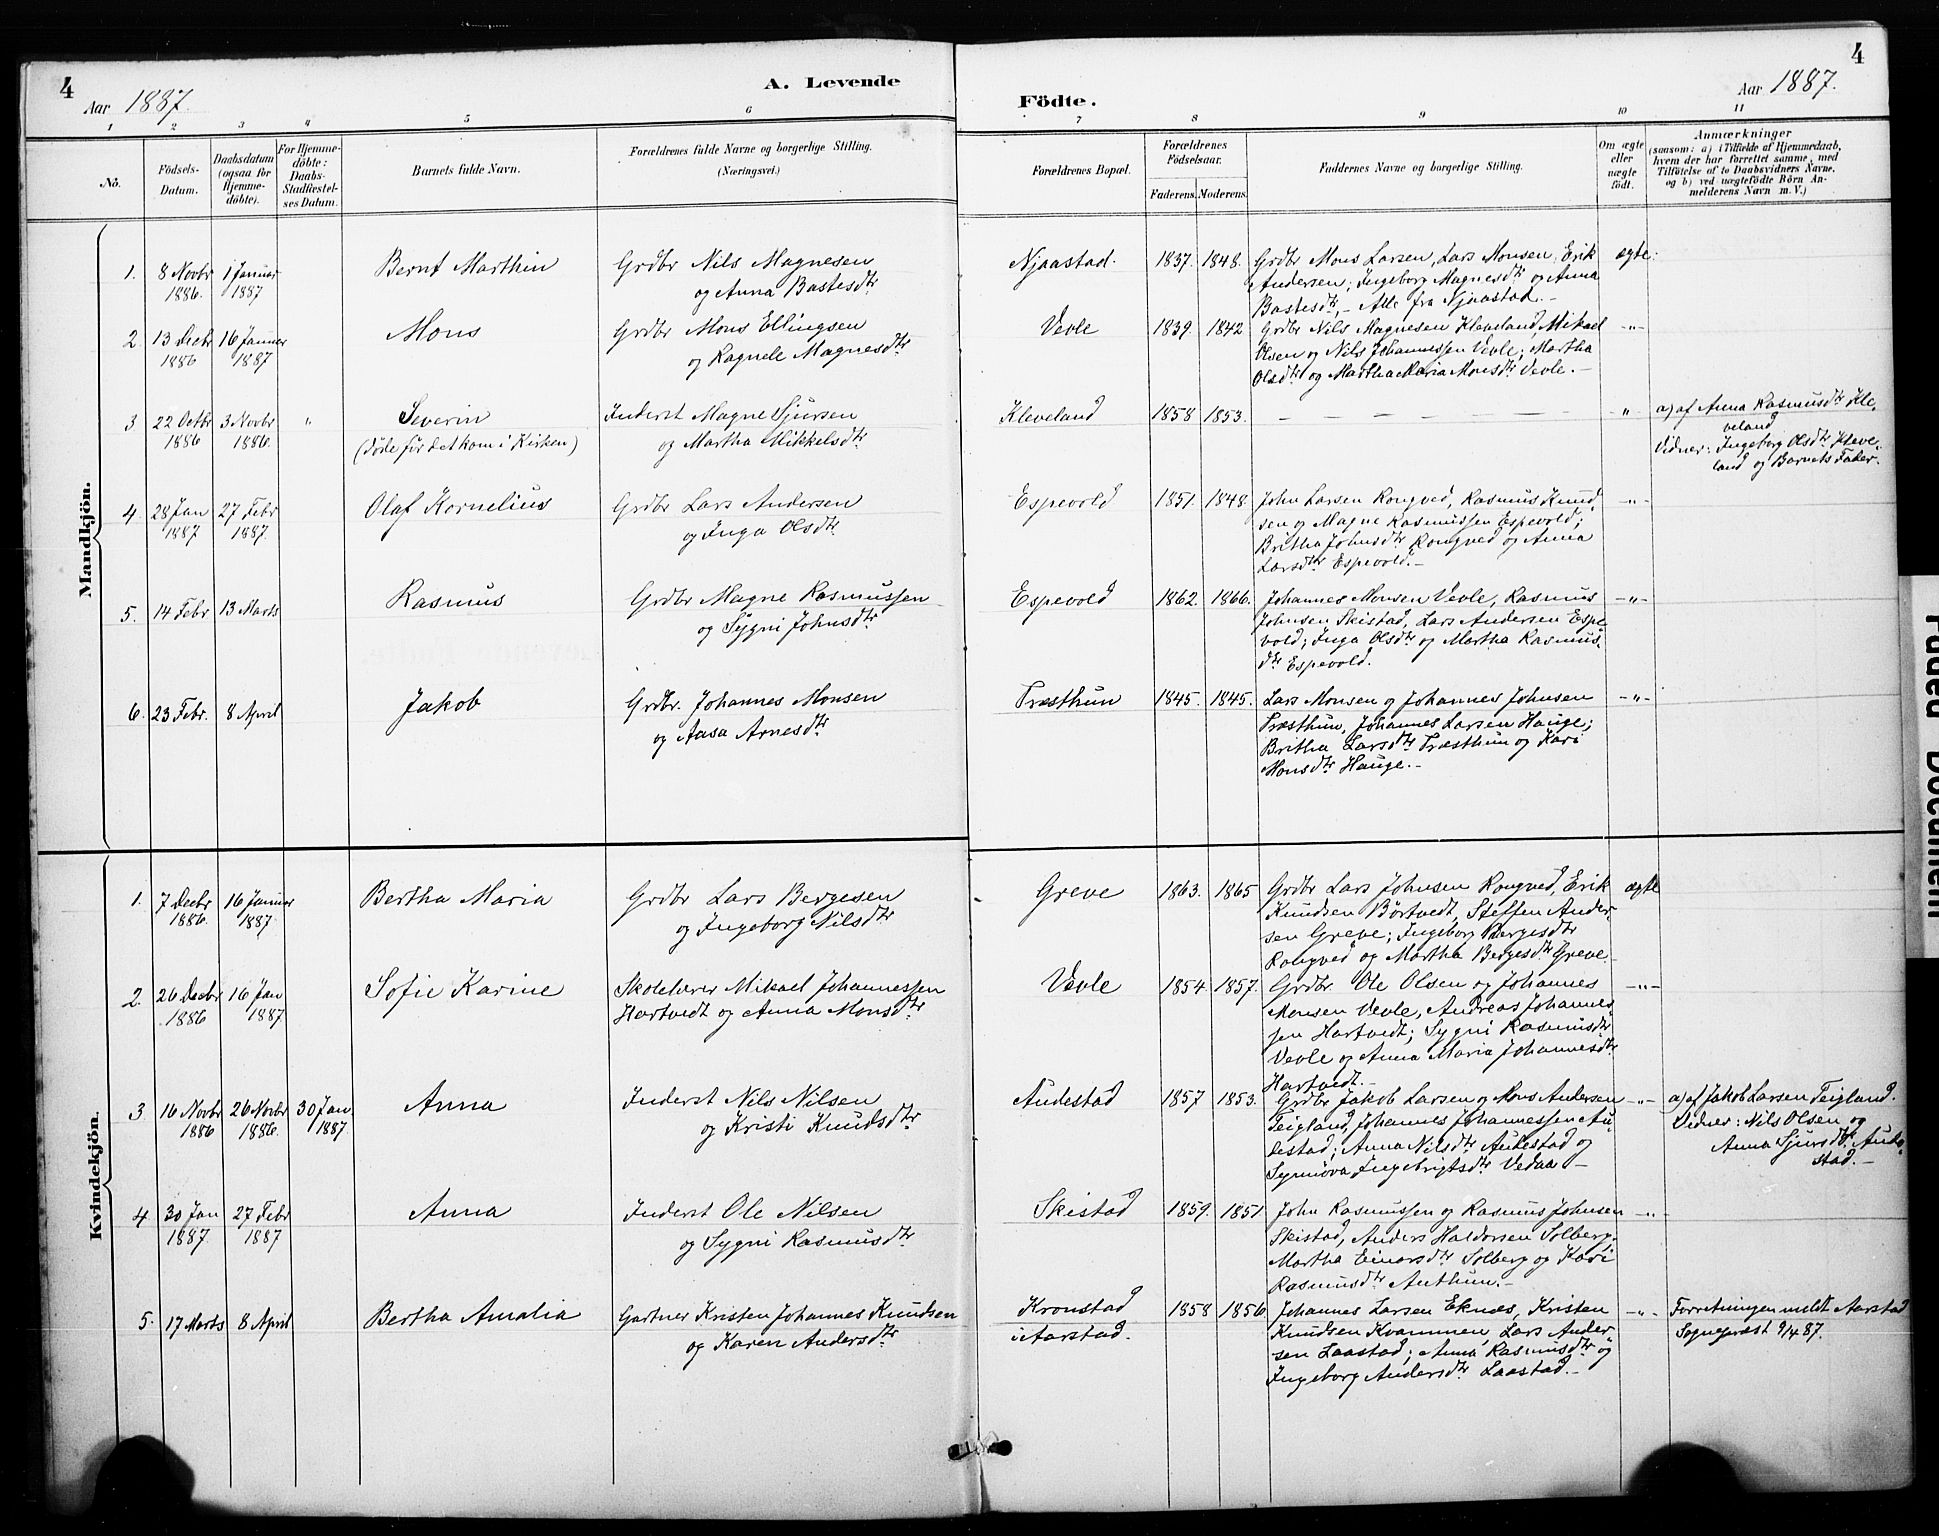 4
Aar 1887.
A. Levende
Födte.
Aar 1887.
4
1 2 3 4 5 6 7 8 9 10 11
No.
Födsels-
Datum.
Daabsdatum
(ogsaa for
Hjemme-
döbte).
For Hjemme-
döbte:
Daabs-
Stadfæstel-
ses Datum.
Barnets fulde Navn.
Forældrenes fulde Navne og borgerlige Stilling.
(Næringsvei.)
Forældrenes Bopæl.
Forældrenes
Födselsaar.
Faderens. Moderens.
Faddernes Navne og borgerlige Stilling.
Om ægte
eller
uægte
födt.
Anmærkninger
(saasom: a) i Tilfælde af Hjemmedaab,
hvem der har forrettet samme, med
Tilföielse af to Daabsvidners Navne,
og b) ved uægtefödte Börn An-
melderens Navn m. V.)
Mandkjön.
1. 8 Novbr 1 Januar Bernt Marthin Grdbr Nils Magnesen Njaastad. 1837. 1848. Grdbr Mons Larsen, Lars Monsen, Erik ægte.
1886. 1887 og Anna Bastesdtr Andersen; Ingeborg Magnesdtr og Anna
Bastesdtr, – Alle fra Njaastad. –
2. 13 Decbr 16 Januar Mons Grdbr Mons Ellingsen Vevle 1839. 1842 Grdbr Nils Magnesen Kleveland, Mikael –"–
1886 1887 og Ragnele Magnesdtr Olsen og Nils Johannessen Vevle; Martha
Olsdtr og Martha Maria Monsdtr Vevle. –
3 22 Octbr 3 Novbr " Severin Inderst Magne Sjursen Kleveland 1858 1853. – – – – – – – " a) af Anna Rasmusdtr Kle-
1886 1886. (döde för det kom i Kirken) og Martha Mikkelsdtr veland
Vidner: Ingeborg Olsdtr Kleve-
land og Barnets Fader.
4. 28 Jan 27 Febr Olaf Kornelius Grdbr Lars Andersen Espevold 1851. 1848. John Larsen Rongved, Rasmus Knud- –"–
1887 1887. og Inga Olsdtr sen og Magne Rasmussen Espevold;
Britha Johnsdtr Rongved og Anna
Larsdtr Espevold. –
5. 14 Febr 13 Marts Rasmus Grdbr Magne Rasmussen Espevold 1862. 1866. Johannes Monsen Vevle, Rasmus –"–
og Sygni Johnsdtr Johnsen Skistad, Lars Andersen Espe-
vold; Inga Olsdtr og Martha Rasmus-
dtr Espevold.
6. 23 Febr. 8 April Jakob Grdbr. Johannes Monsen Træsthun 1845. 1845. Lars Monsen og Johannes Johnsen –"–
og Aasa Arnesdtr Træsthun, Johannes Larsen Hauge;
Britha Larsdtr Træsthun og Kari
Monsdtr Hauge. –
Kvindekjön.
1. 7 Decbr 16 Januar Bertha Maria Grdbr Lars Bergesen Greve 1863. 1865 Grdbr Lars Johnsen Rongved, Erik ægte
1886. 1887. og Ingeborg Nilsdtr Knudsen Börtvedt, Steffen Ander-
sen Greve; Ingeborg Bergesdtr
Rongved og Martha Bergesdtr Greve.
2. 26 Decbr 16 Jan Sofie Karine Skolelærer Mikael Johannessen Vevle 1854. 1857. Grdbr Ole Olsen og Johannes –"–
1886 1887 Hartvedt og Anna Monsdtr Monsen Vevle, Andreas Johannes-
sen Hartvedt; Sygni Rasmusdtr
Vevle og Anna Maria Johannesdtr
Hartvedt. –
3. 16 Novbr 26 Novbr 30 Jan Anna Inderst Nils Nilsen Audestad 1857 1853. Grdbr Jakob Larsen og Mons Andersen –"– a) af Jakob Larsen Teigland.
1886 1886. 1887. og Kristi Knudsdtr Teigland, Johannes Johannessen Au- Vidner: Nils Olsen og
destad; Anna Nilsdtr Audestad og Anna Sjursdtr Aude-
Synnöva Ingebrigtsdtr Vedaa – stad. –
4. 30 Jan 27 Febr Anna Inderst Ole Nilsen Skistad 1859. 1851. John Rasmussen og Rasmus Johnsen –"–
1887. 1887 og Sygni Rasmusdtr Skistad, Anders Haldorsen Solberg;
Martha Einarsdtr Solberg og Kari
Rasmusdtr Authun. –
5. 17 Marts 8 April Bertha Amalia Gartner Kristen Johannes Knudsen Kronstad 1858 1856. Johannes Larsen Eknæs, Kristen –"– Forretningen meldt Aarstad
og Karen Andersdtr i Aarstad. Knudsen Kvammen, Lars Ander- Sognepræst 9/4 87.
sen Laastad; Anna Rasmusdtr og
Ingeborg Andersdtr Laastad. –
Faded Document